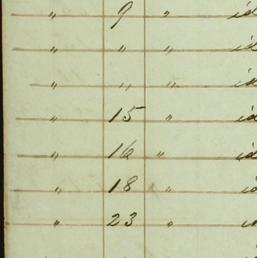 " 9 " id
" " " id
" " " id
" 15 " id
" 16 " id
" 18 " id
" 23 "